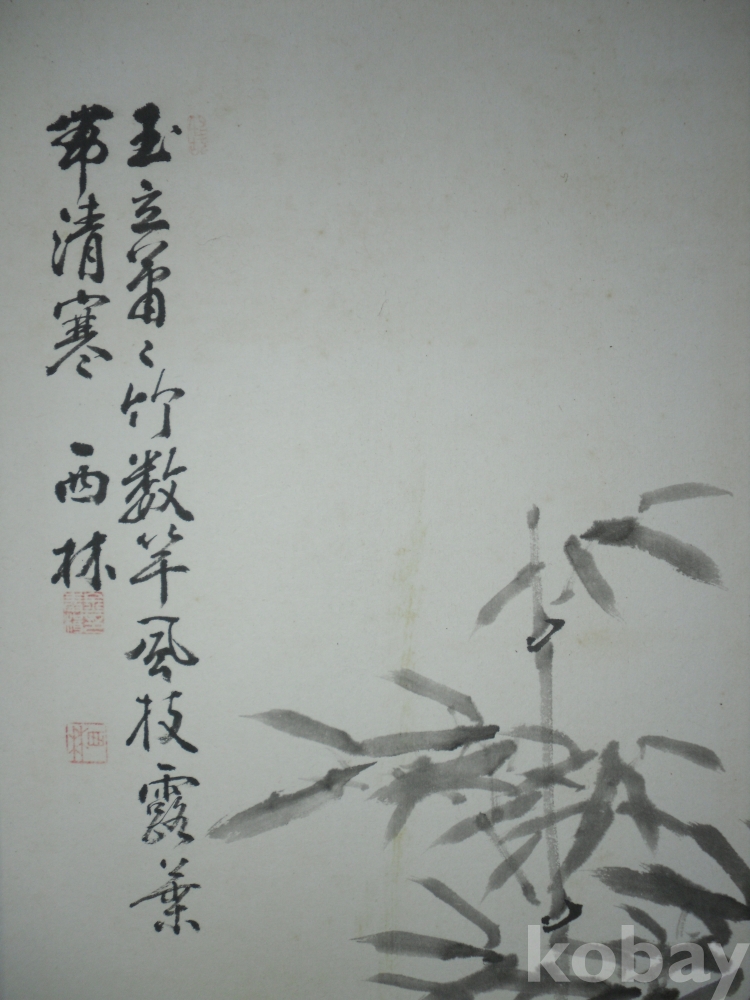 玉立蕭〻竹数竿風枝露葉
帶清寒 西林
kobay